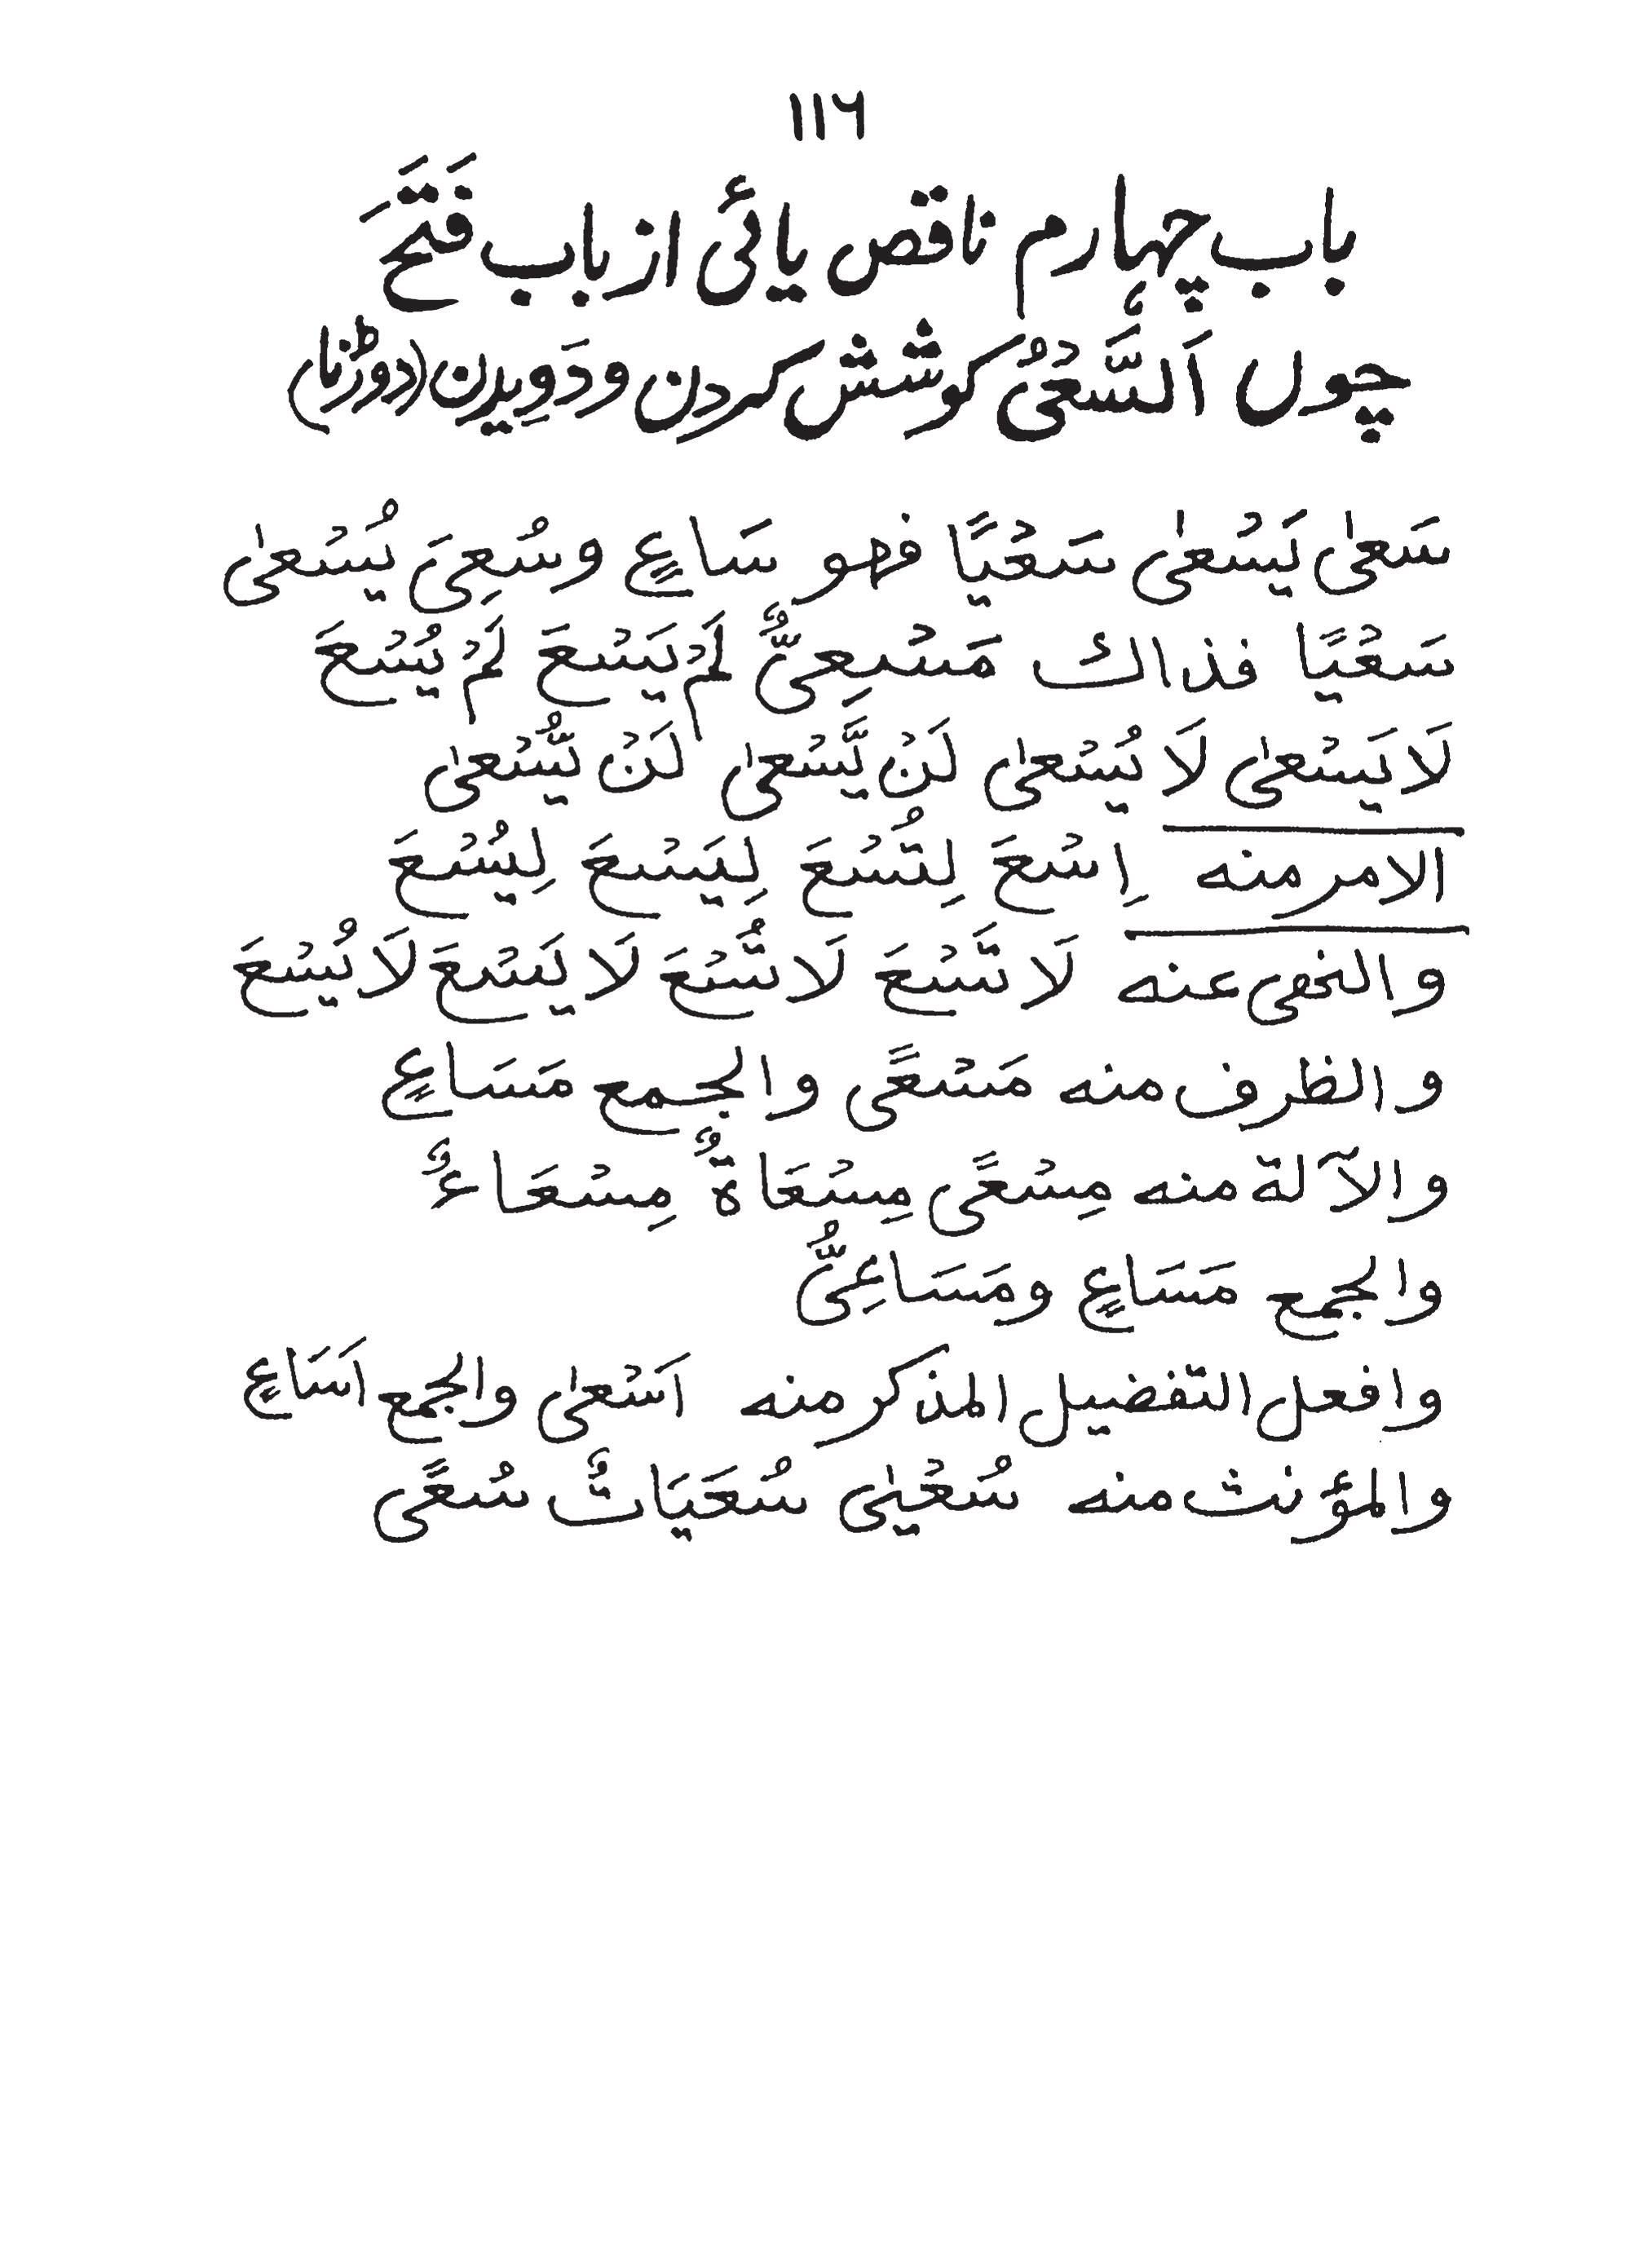 ۱۱۶
باب چہارم ناقص یائی از باب فَتَحَ
چوں اَلسَّعْیُ کوشش کردن و دَوِیدن (دوڑنا)
سَعٰی یَسْعٰی سَعْیًا فهو سَاعٍ و سُعِیَ یُسْعٰی
سَعْیًا فذاك مَسْعِیٌّ لَمْ یَسْعَ لَمْ یُسْعَ
لَا یَسْعٰی لَا یُسْعٰی لَنْ یَّسْعٰی لَنْ یُّسْعٰی
الامر منه اِسْعَ لِتُسْعَ لِیَسْعَ لِیُسْعَ
والنهی عنه لَا تَسْعَ لَا تُسْعَ لَا یَسْعَ لَا یُسْعَ
و الظرف منه مَسْعًی والجمع مَسَاعٍ
والآلة منه مِسْعًی مِسْعَاةٌ مِسْعَاءٌ
والجمع مَسَاعٍ ومَسَاعِیُّ
وافعل التفضیل المذکر منه اَسْعٰی والجمع اَسَاعٍ
والمؤنث منه سُعْیٰی سُعَیَاتٌ سُعًی